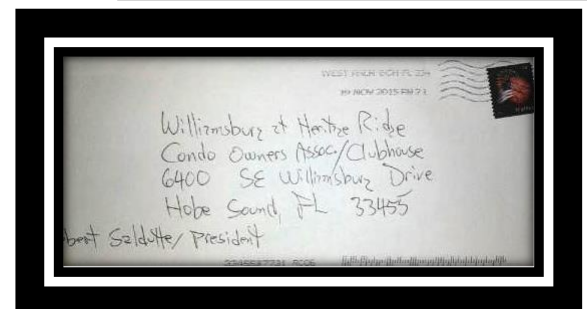 WEST PALM BCH FL 334
19 NOV 2015 PM 2 L
Williamsburg at Heritage Ridge
Condo Owners Assoc./Clubhouse
6400 SE Williamsburg Drive
Hobe Sound, FL 33455
bert Saldutte/President